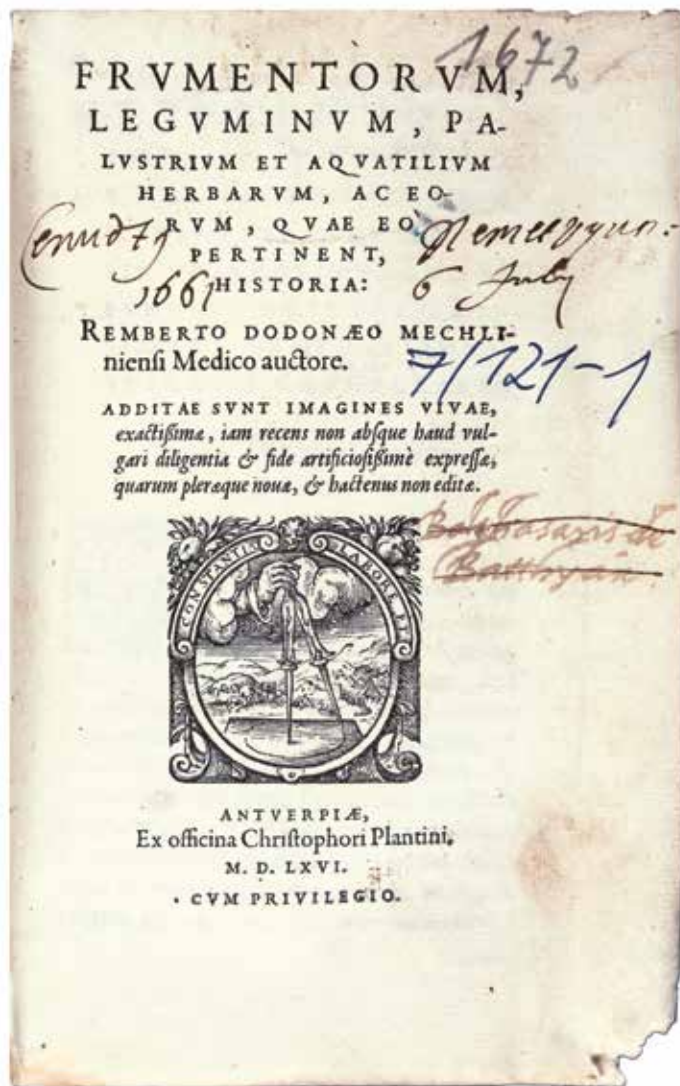 1672
FRVMENTORVM,
LEGVMINVM, PA-
LVSTRIVM ET AQVATILIVM
HERBARVM, AC EO-
RVM, QVAE EO
PERTINENT,
1661
HISTORIA:
6 July
REMBERTO DODONÆO MECHLI-
nienſi Medico auctore.
7/121-1
ADDITAE SVNT IMAGINES VIVAE,
exactißimæ, iam recens non abſque haud vul-
gari diligentia & fide artificioſißimè expreſſæ,
quarum pleræque nouæ, & hactenus non editæ.
CONSTANTIA
LABORE ET
ANTVERPIÆ,
Ex officina Chriſtophori Plantini.
M. D. LXVI.
CVM PRIVILEGIO.